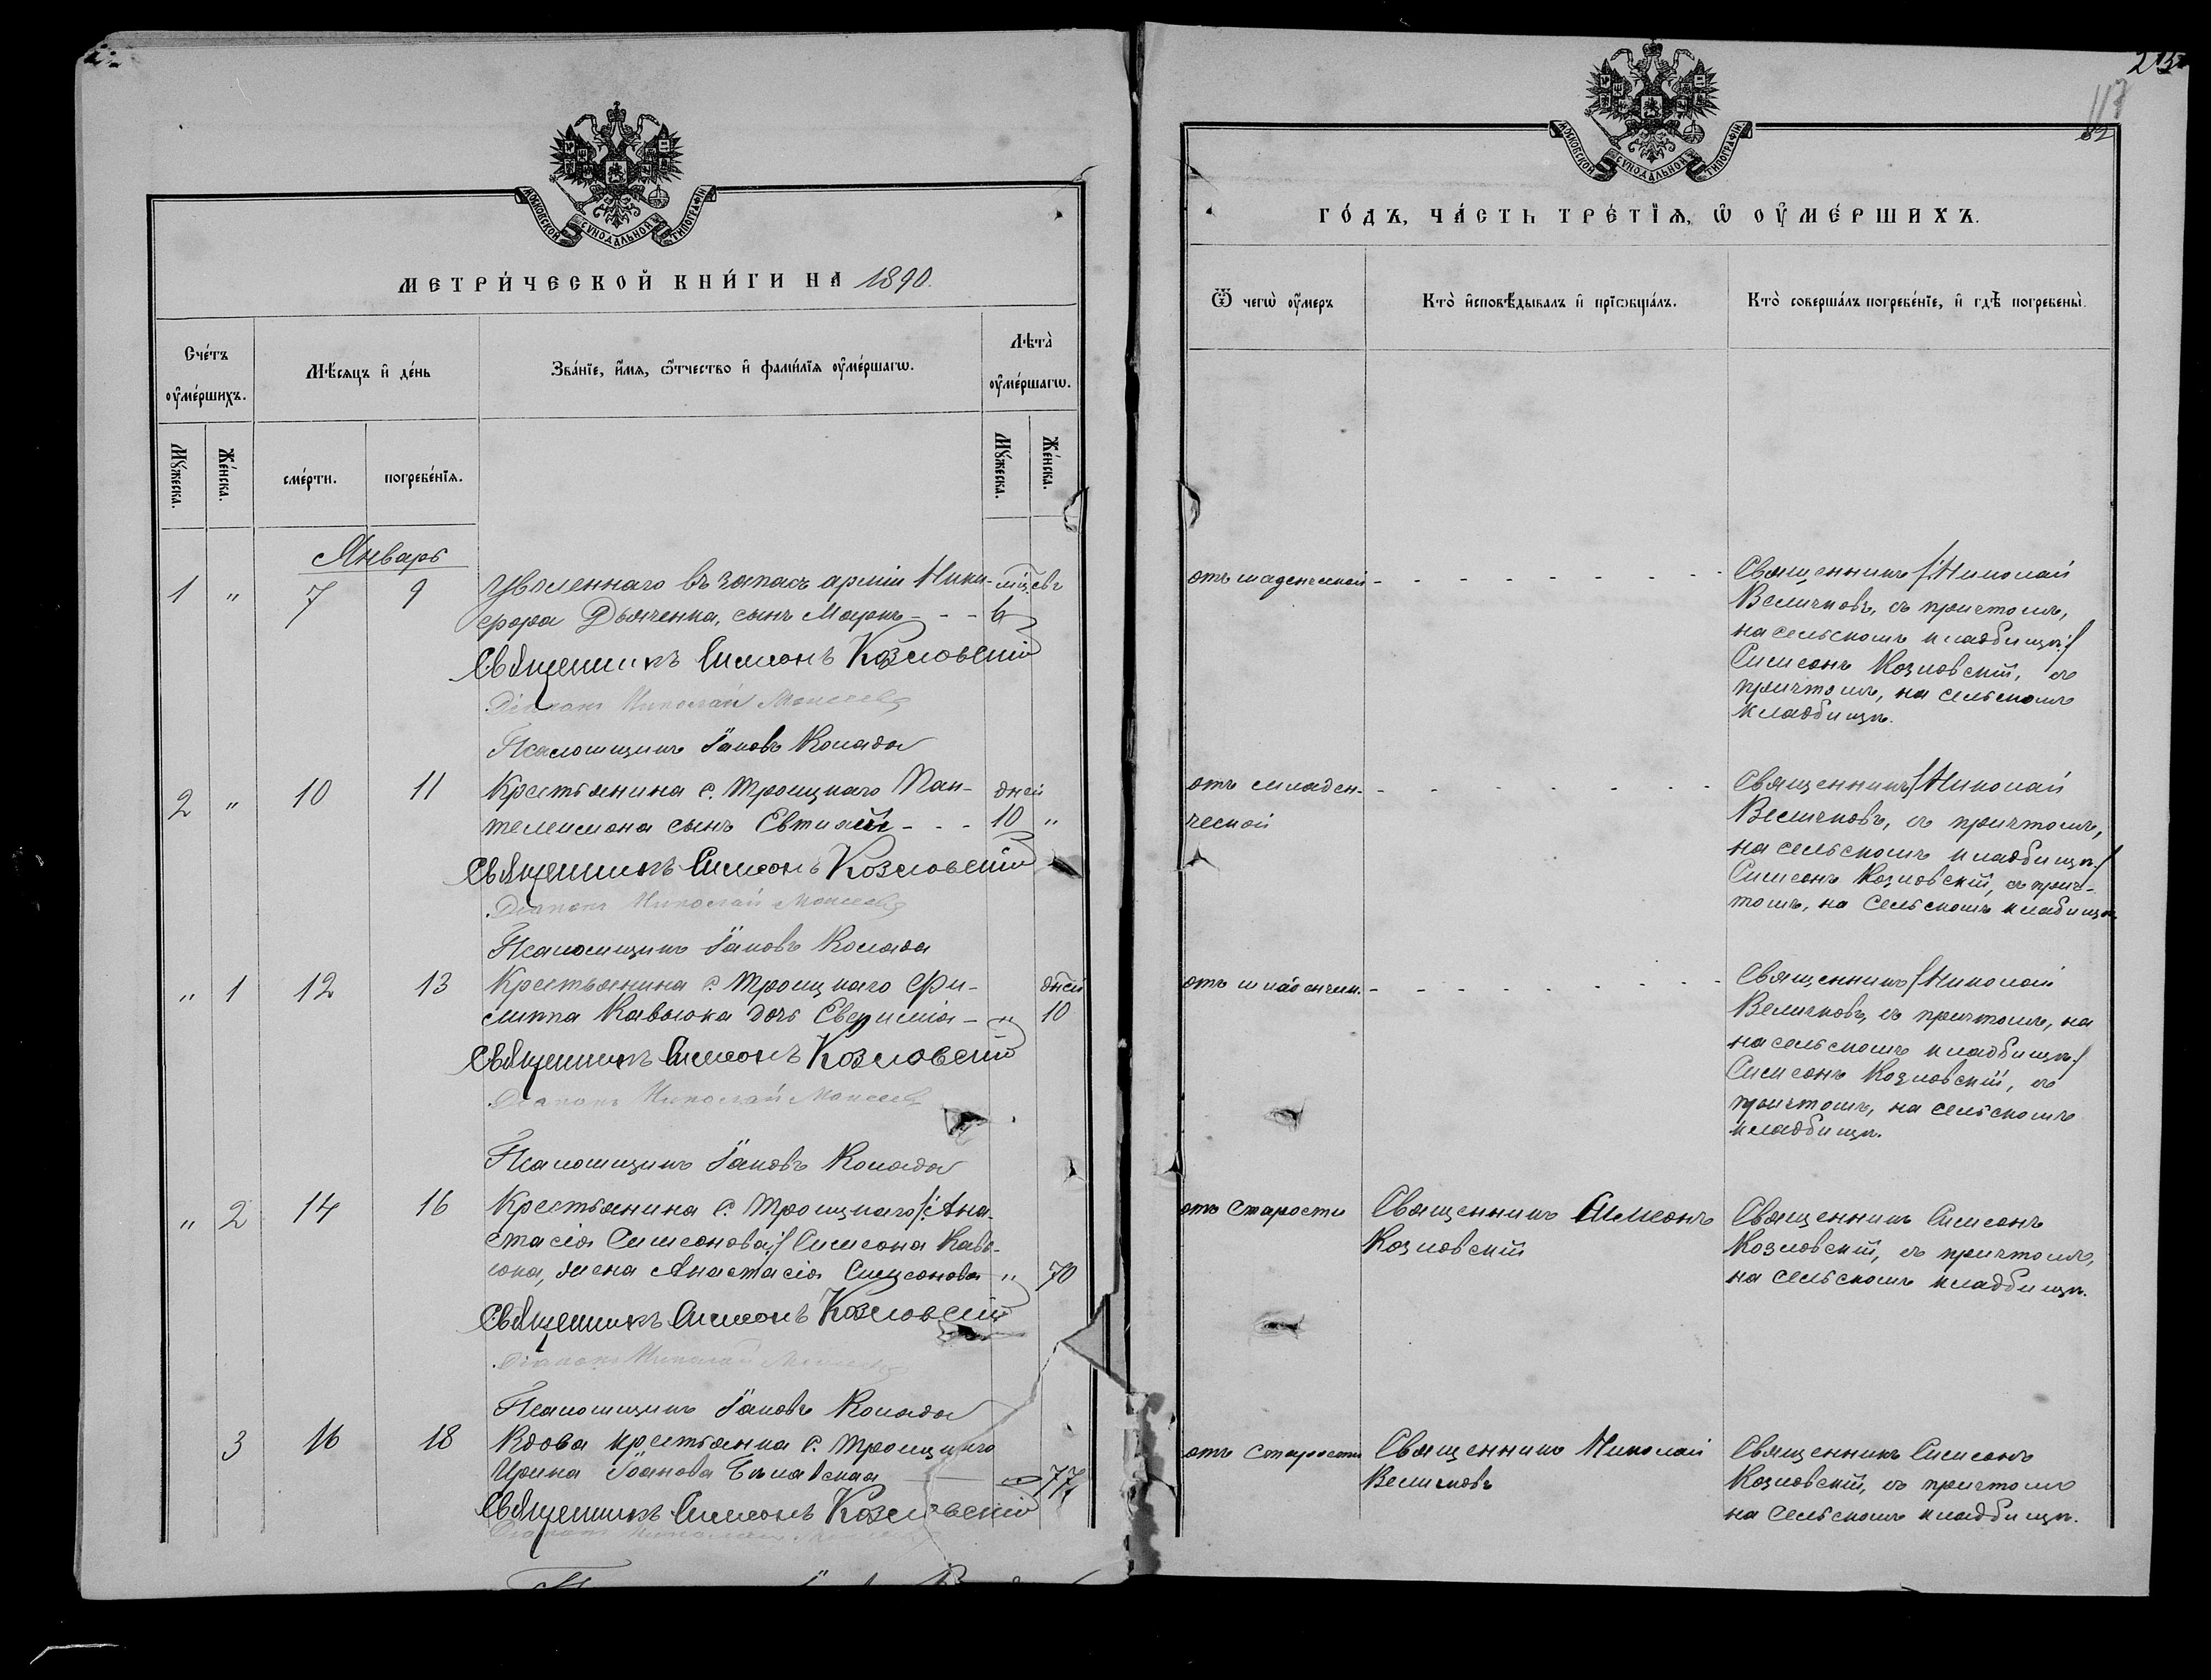 МОСКОВСКОЙ СѴНОДАЛЬНОЙ ТИПОГРАФІИ
МЕТРИ́ЧЕСКОЙ КНИ́ГИ НА 1890.
Сче́тъ оу҆ме́ршихъ.
Мѣ́сяцъ и҆ де́нь
Зва́нїе, и҆́мя, ѻ҆́тчество и҆ фами́лїя оу҆ме́ршагѡ.
Лѣта̀ оу҆ме́ршагѡ.
Мꙋ́жеска.
Же́нска.
сме́рти.
погребе́нїя.
Мꙋ́жеска.
Же́нска.
Январь
1 " 7 9 Уволеннаго въ запасъ арміи Ники- мѣ͠цевъ
фора Дьяченка, сынъ Маркъ - - - 6
Священникъ Симеонъ Козловскій
Діаконъ Николай Моисеевъ
Псаломщикъ Іаковъ Колада
2 " 10 11 Крестьянина с. Троицкаго Пан- дней
телеимона сынъ Евтихій - - - 10 "
Священникъ Симеонъ Козловскій
Діаконъ Николай Моисеевъ
Псаломщикъ Іаковъ Колада
" 1 12 13 Крестьянина с. Троицкаго Фи- дней
липпа Кавьюка дочь Евфимія - " 10
Священникъ Симеонъ Козловскій
Діаконъ Николай Моисеевъ
Псаломщикъ Іаковъ Колада
" 2 14 16 Крестьянина с. Троицкаго /: Ана-
стасія Симеонова :/ Симеона Кавь-
юка, жена Анастасія Симеонова " 70
Священникъ Симеонъ Козловскій
Діаконъ Николай Моисеевъ
Псаломщикъ Іаковъ Колада
3 16 18 Вдова крестьянка с. Троицкаго
Ирина Іоанова 77
Священникъ Симеонъ Козловскій
Діаконъ Николай
213
117
82
МОСКОВСКОЙ СѴНОДАЛЬНОЙ ТИПОГРАФІИ
ГО́ДЪ, ЧА́СТЬ ТРЕ́ТІЯ, Ѡ҆ ОУ҆МЕ́РШИХЪ.
Ѿ чегѡ̀ оу҆́меръ
Кто̀ и҆сповѣ́дывалъ и҆ прїѻбща́лъ.
Кто̀ соверша́лъ погребе́нїе, и҆ гдѣ̀ погребены̀.
отъ младенческой - - - - - - - - Священникъ /: Николай
Величковъ, съ причтомъ,
на сельскомъ кладбищѣ :/
Симеонъ Козловскій, съ
причтомъ, на сельскомъ
кладбищѣ.
отъ младен- - - - - - - - Священникъ /: Николай
ческой Величковъ, съ причтомъ,
на сельскомъ кладбищѣ :/
Симеонъ Козловскій, съ прич-
томъ, на сельскомъ кладбищѣ
отъ младенческ. - - - - - - - - Священникъ /: Николай
Величковъ, съ причтомъ, на
на сельскомъ кладбищѣ :/
Симеонъ Козловскій, съ
причтомъ, на сельскомъ
кладбищѣ.
отъ старости Священникъ Симеонъ Священникъ Симеонъ
Козловскій Козловскій, съ причтомъ,
на сельскомъ кладбищѣ.
отъ старости Священникъ Николай Священникъ Симеонъ
Величковъ Козловскій, съ причтомъ
на сельскомъ кладбищѣ.